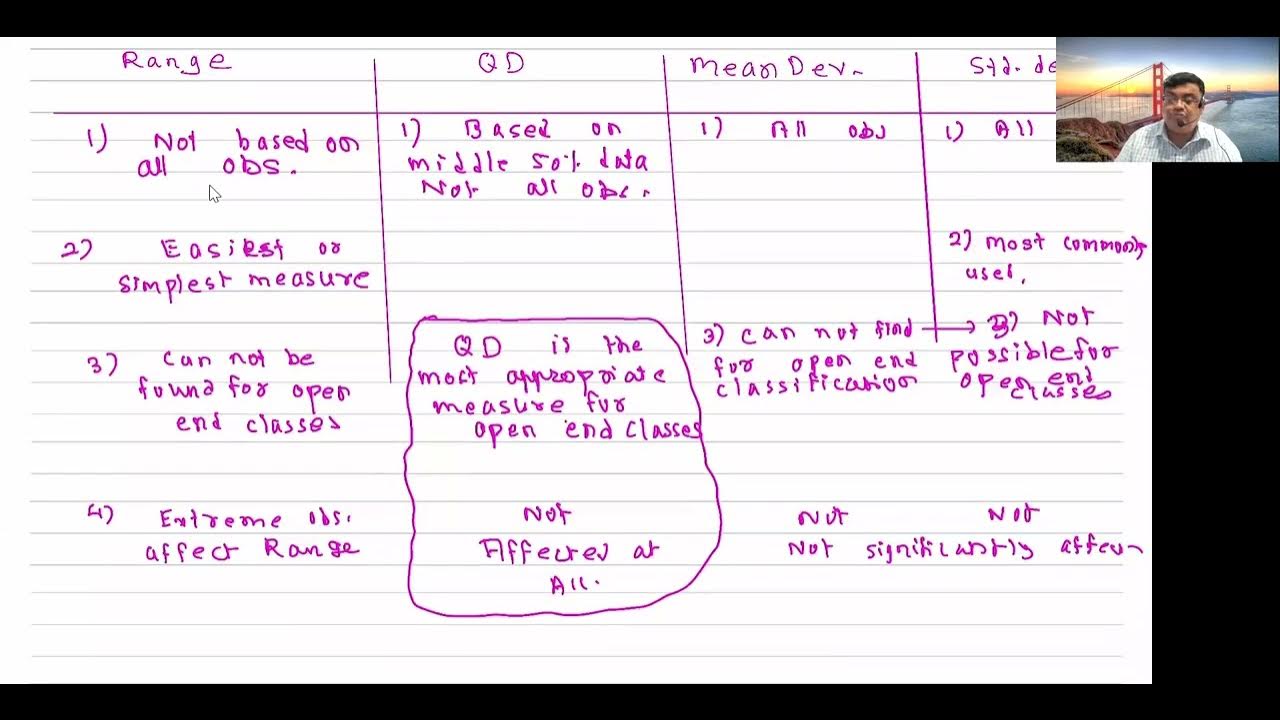 Range
QD
Mean Dev.
Std. de
1) Not based on
all obs.
1) Based on
middle 50% data
Not all obs.
1) All obs
1) All
2) Easiest or
simplest measure
2) most commonly
used.
3) Can not be
found for open
end classes
QD is the
most appropriate
measure for
open end classes
3) Can not find
for open end
classification
3) Not
possible for
open end
classes
4) Extreme obs.
affect Range
Not
Affected at
All.
Not
Not
Not significantly affecn